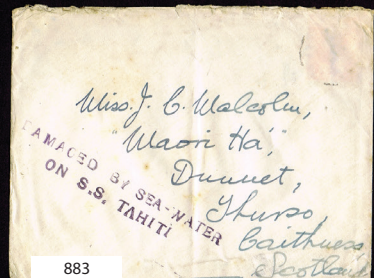 Miss. J. C. Malcolm,
"Maori Ha",
Dunnet,
Thurso,
Caithness
Scotland
DAMAGED BY SEA-WATER
ON S.S. TAHITI
883